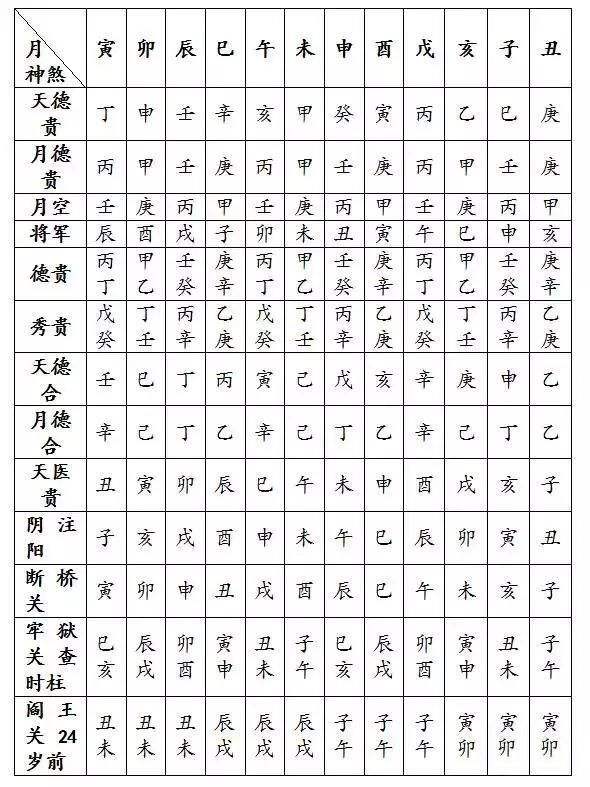 月 寅 卯 辰 巳 午 未 申 酉 戌 亥 子 丑
神煞
天德 丁 申 壬 辛 亥 甲 癸 寅 丙 乙 巳 庚
贵
月德 丙 甲 壬 庚 丙 甲 壬 庚 丙 甲 壬 庚
贵
月空 壬 庚 丙 甲 壬 庚 丙 甲 壬 庚 丙 甲
将军 辰 酉 戌 子 卯 未 丑 寅 午 巳 申 亥
德贵 丙 甲 壬 庚 丙 甲 壬 庚 丙 甲 壬 庚
丁 乙 癸 辛 丁 乙 癸 辛 丁 乙 癸 辛
秀贵 戊 丁 丙 乙 戊 丁 丙 乙 戊 丁 丙 乙
癸 壬 辛 庚 癸 壬 辛 庚 癸 壬 辛 庚
天德 壬 巳 丁 丙 寅 己 戊 亥 辛 庚 申 乙
合
月德 辛 己 丁 乙 辛 己 丁 乙 辛 己 丁 乙
合
天医 丑 寅 卯 辰 巳 午 未 申 酉 戌 亥 子
贵
阴 注 子 亥 戌 酉 申 未 午 巳 辰 卯 寅 丑
阳
断 桥 寅 卯 申 丑 戌 酉 辰 巳 午 未 亥 子
关
牢 狱 巳 辰 卯 寅 丑 子 巳 辰 卯 寅 丑 子
关 查 亥 戌 酉 申 未 午 亥 戌 酉 申 未 午
时柱
阎 王 丑 丑 丑 辰 辰 辰 子 子 子 寅 寅 寅
关 24 未 未 未 戌 戌 戌 午 午 午 卯 卯 卯
岁前